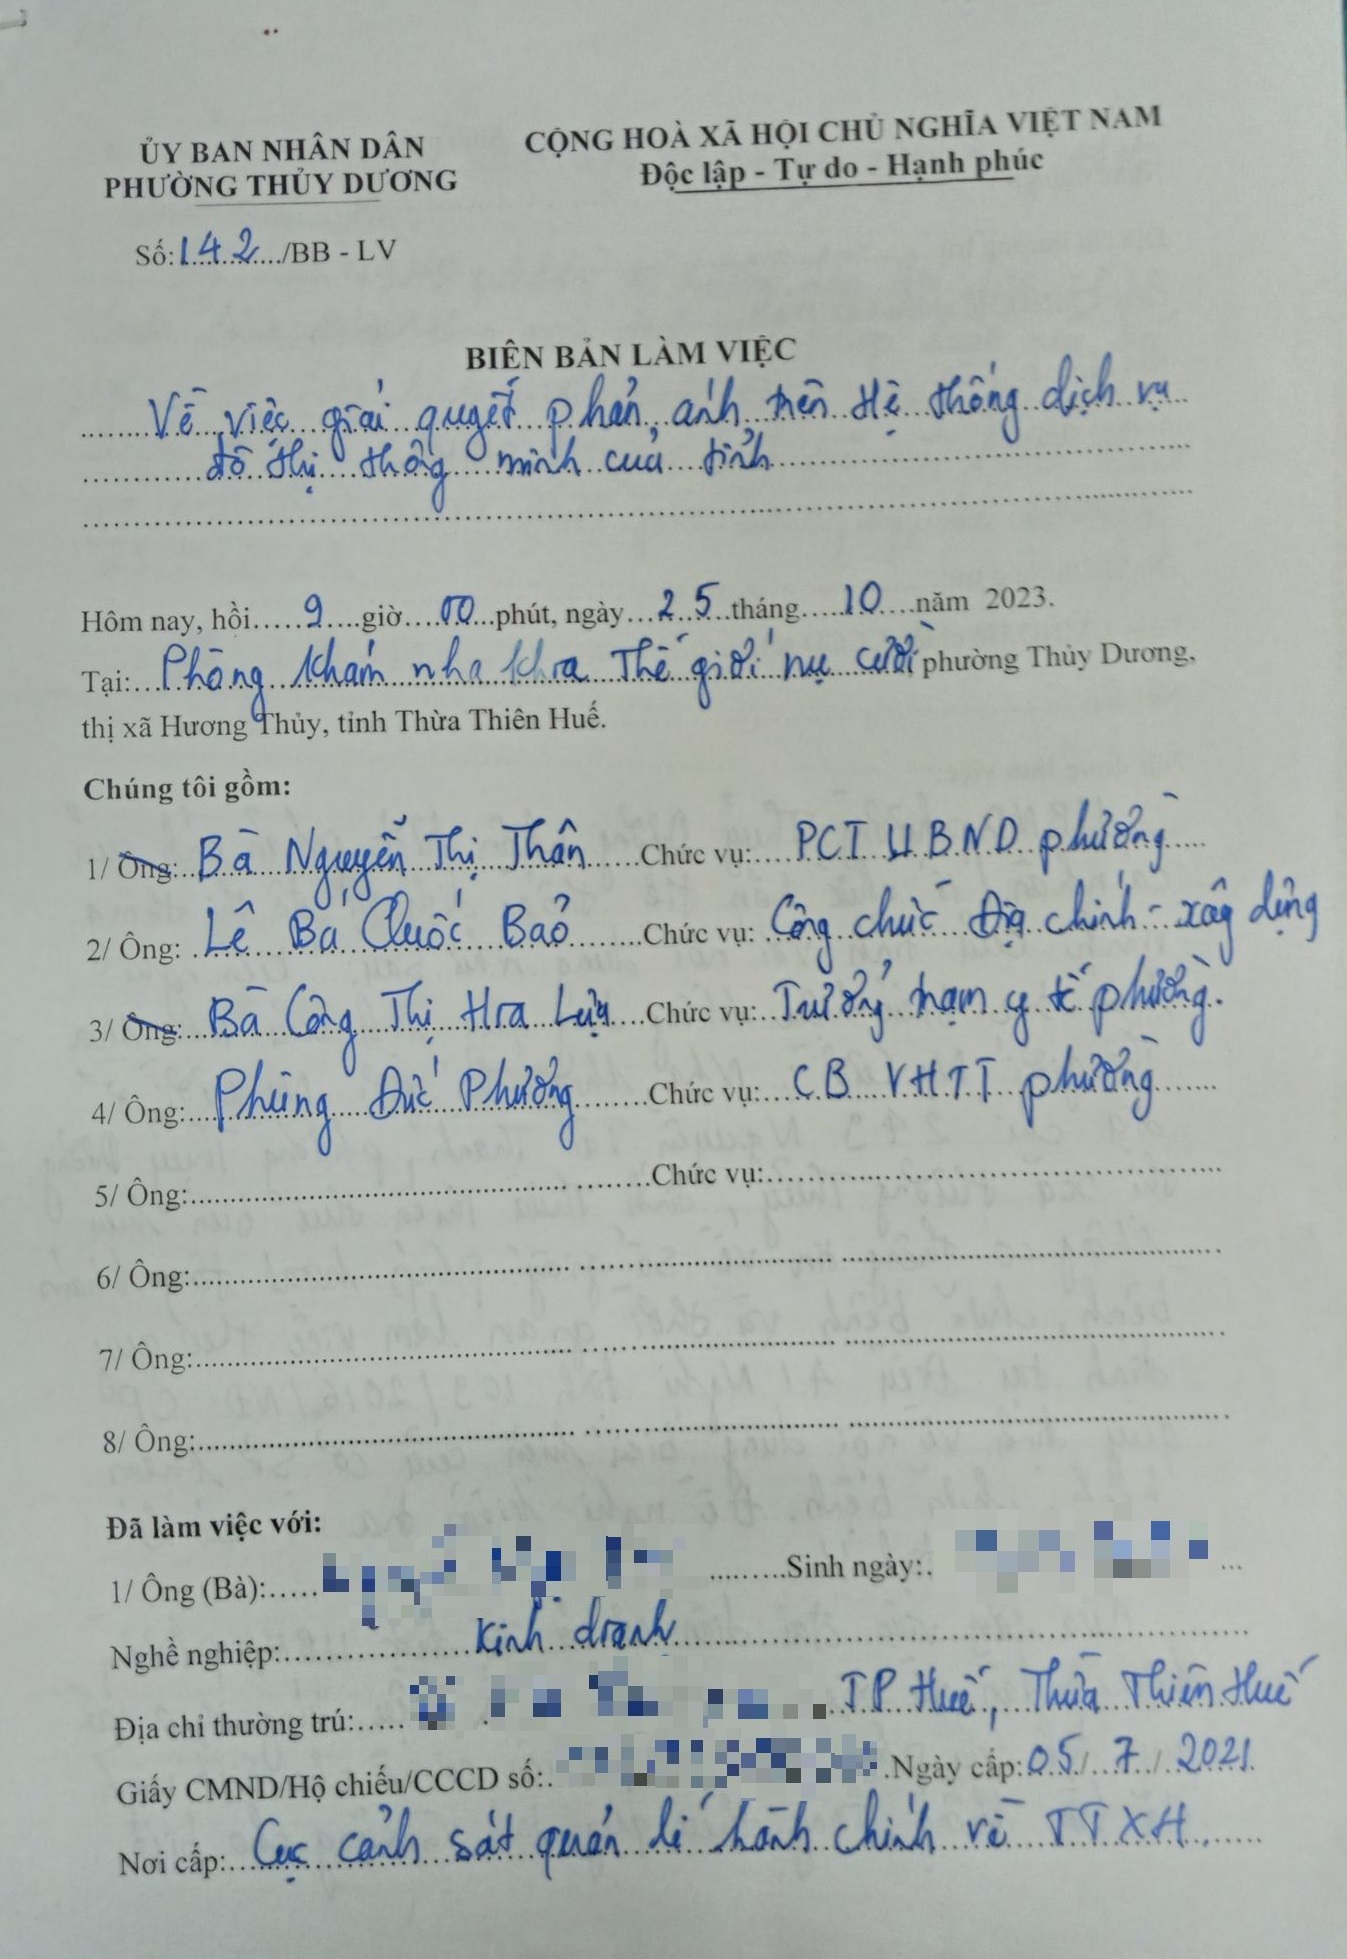 ỦY BAN NHÂN DÂN
PHƯỜNG THỦY DƯƠNG
CỘNG HOÀ XÃ HỘI CHỦ NGHĨA VIỆT NAM
Độc lập - Tự do - Hạnh phúc
Số: 142 /BB - LV
BIÊN BẢN LÀM VIỆC
Về việc giải quyết phản ánh trên Hệ thống dịch vụ
đô thị thông minh của tỉnh
Hôm nay, hồi 9 giờ 00 phút, ngày 25 tháng 10 năm 2023.
Tại: Phòng khám nha khoa Thế giới nụ cười phường Thủy Dương,
thị xã Hương Thủy, tỉnh Thừa Thiên Huế.
Chúng tôi gồm:
1/ Ông: Bà Nguyễn Thị Thân Chức vụ: PCT UBND phường
2/ Ông: Lê Bá Quốc Bảo Chức vụ: Công chức Địa chính - xây dựng
3/ Ông: Bà Công Thị Hoa Lựu Chức vụ: Trưởng trạm y tế phường.
4/ Ông: Phùng Đức Phương Chức vụ: CB VHTT phường
5/ Ông: Chức vụ:
6/ Ông:
7/ Ông:
8/ Ông:
Đã làm việc với:
1/ Ông (Bà): Sinh ngày:
Nghề nghiệp: Kinh doanh
Địa chỉ thường trú: TP Huế, Thừa Thiên Huế
Giấy CMND/Hộ chiếu/CCCD số: Ngày cấp: 05/ 7 / 2021
Nơi cấp: Cục cảnh sát quản lí hành chính về TTXH.